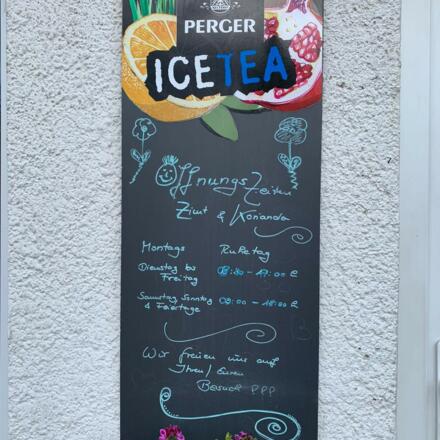 PERGER
ICETEA
Öffnungszeiten
Zimt & Koriander
Montags Ruhetag
Dienstag bis Freitag 08:30 - 17:00
Samstag, Sonntag & Feiertage 09:00 - 18:00
Wir freuen uns auf
Ihren / Euren
Besuch